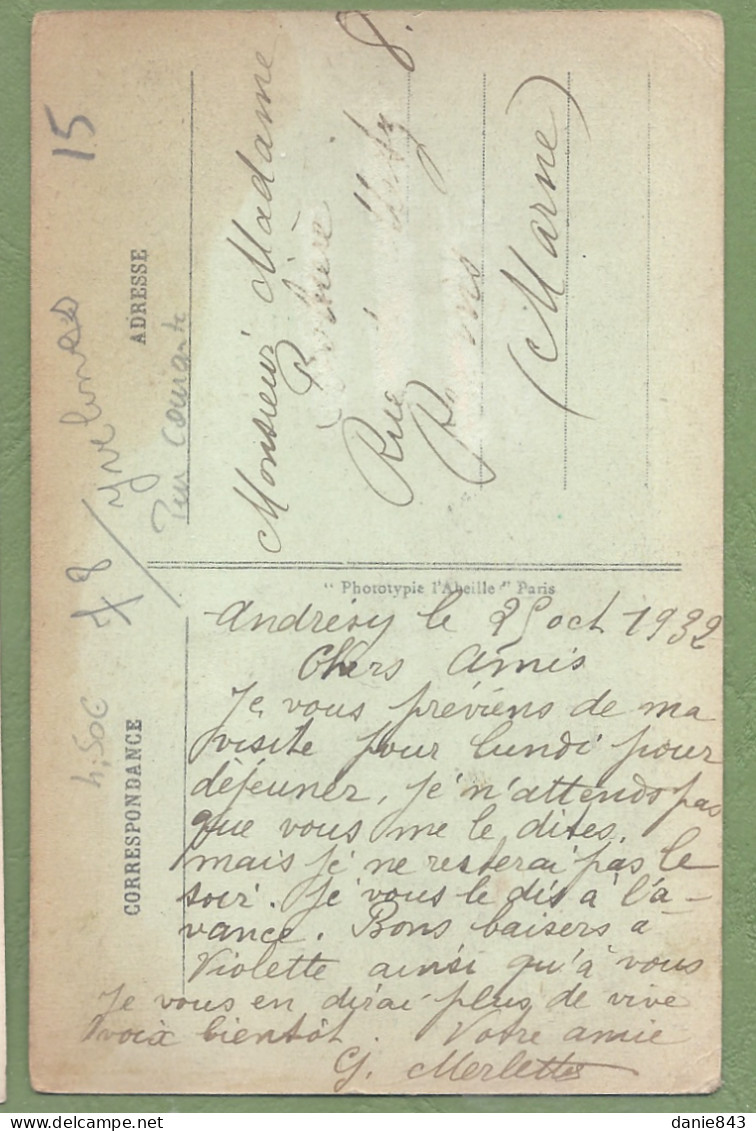 CORRESPONDANCE
ADRESSE
15
78/yvelines
4,50€
" Phototypie l'Abeille " Paris
Monsieur Madame
Rue
8.
(Marne)
Andrésy le 25 oct 1932
Chers Amis
Je vous préviens de ma
visite pour lundi pour
déjeuner, je n'attends pas
que vous me le dites,
mais je ne resterai pas le
soir. Je vous le dis à l'a-
vance. Bons baisers à
Violette ainsi qu'à vous
Je vous en dirai plus de vive
voix bientôt. Votre amie
G. Merlette
danie843